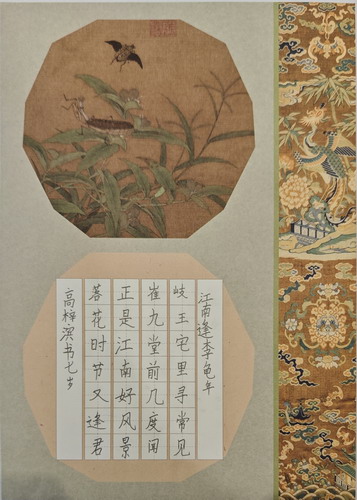 江南逢李龟年
岐王宅里寻常见
崔九堂前几度闻
正是江南好风景
落花时节又逢君
高梓滨书七岁